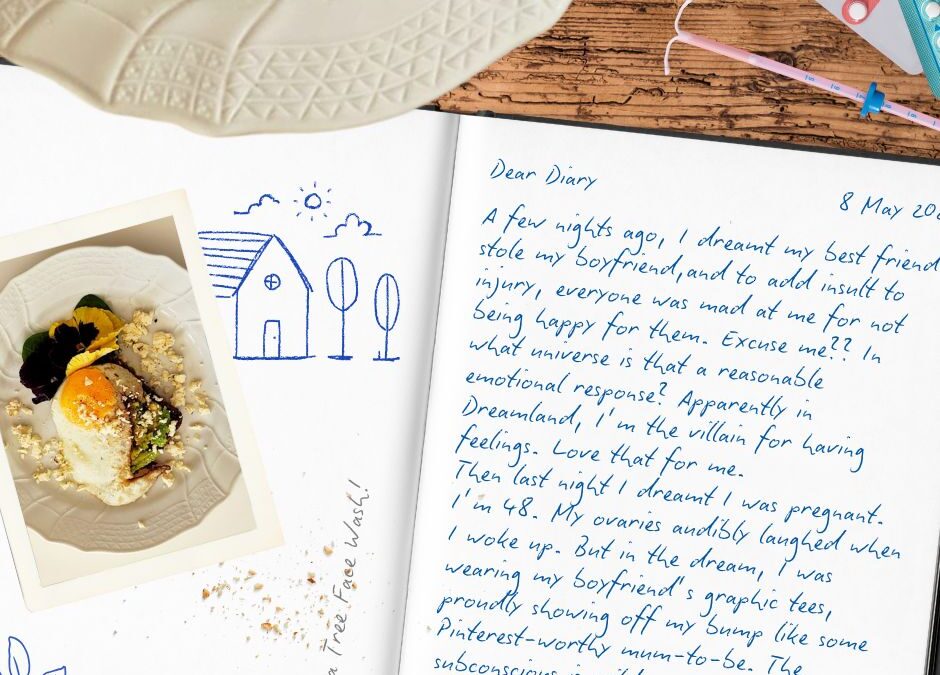 Dear Diary
8 May
A few nights ago, I dreamt my best friend
stole my boyfriend, and to add insult to
injury, everyone was mad at me for not
being happy for them. Excuse me?? In
what universe is that a reasonable
emotional response? Apparently in
Dreamland, I'm the villain for having
feelings. Love that for me.
Then last night I dreamt I was pregnant.
I'm 48. My ovaries audibly laughed when
I woke up. But in the dream, I was
wearing my boyfriend's graphic tees,
proudly showing off my bump like some
Pinterest-worthy mum-to-be. The
subconscious
Tree Face Wash!